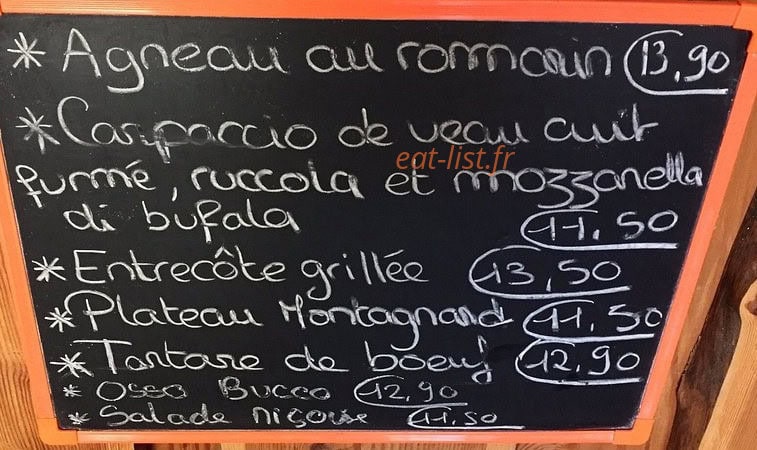 * Agneau au romarin 13,90
* Carpaccio de veau cuit
fumé, ruccola et mozzarella
di bufala 11,50
* Entrecôte grillée 13,50
* Plateau Montagnard 11,50
* Tartare de boeuf 12,90
* Osso Bucco 12,90
* Salade niçoise 11,50
eat-list.fr